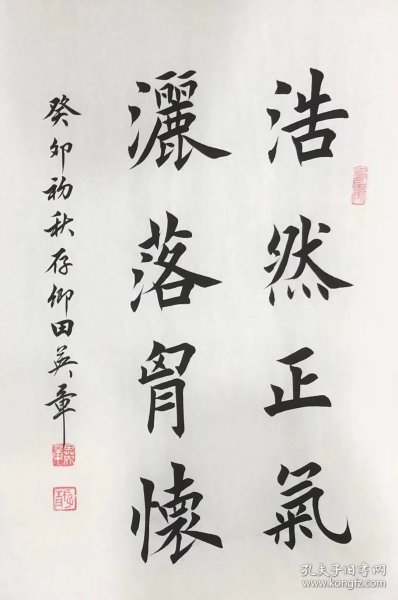 浩然正氣
灑落胷懷
癸卯初秋存卿田英章
孔夫子旧书网
www.kongfz.com